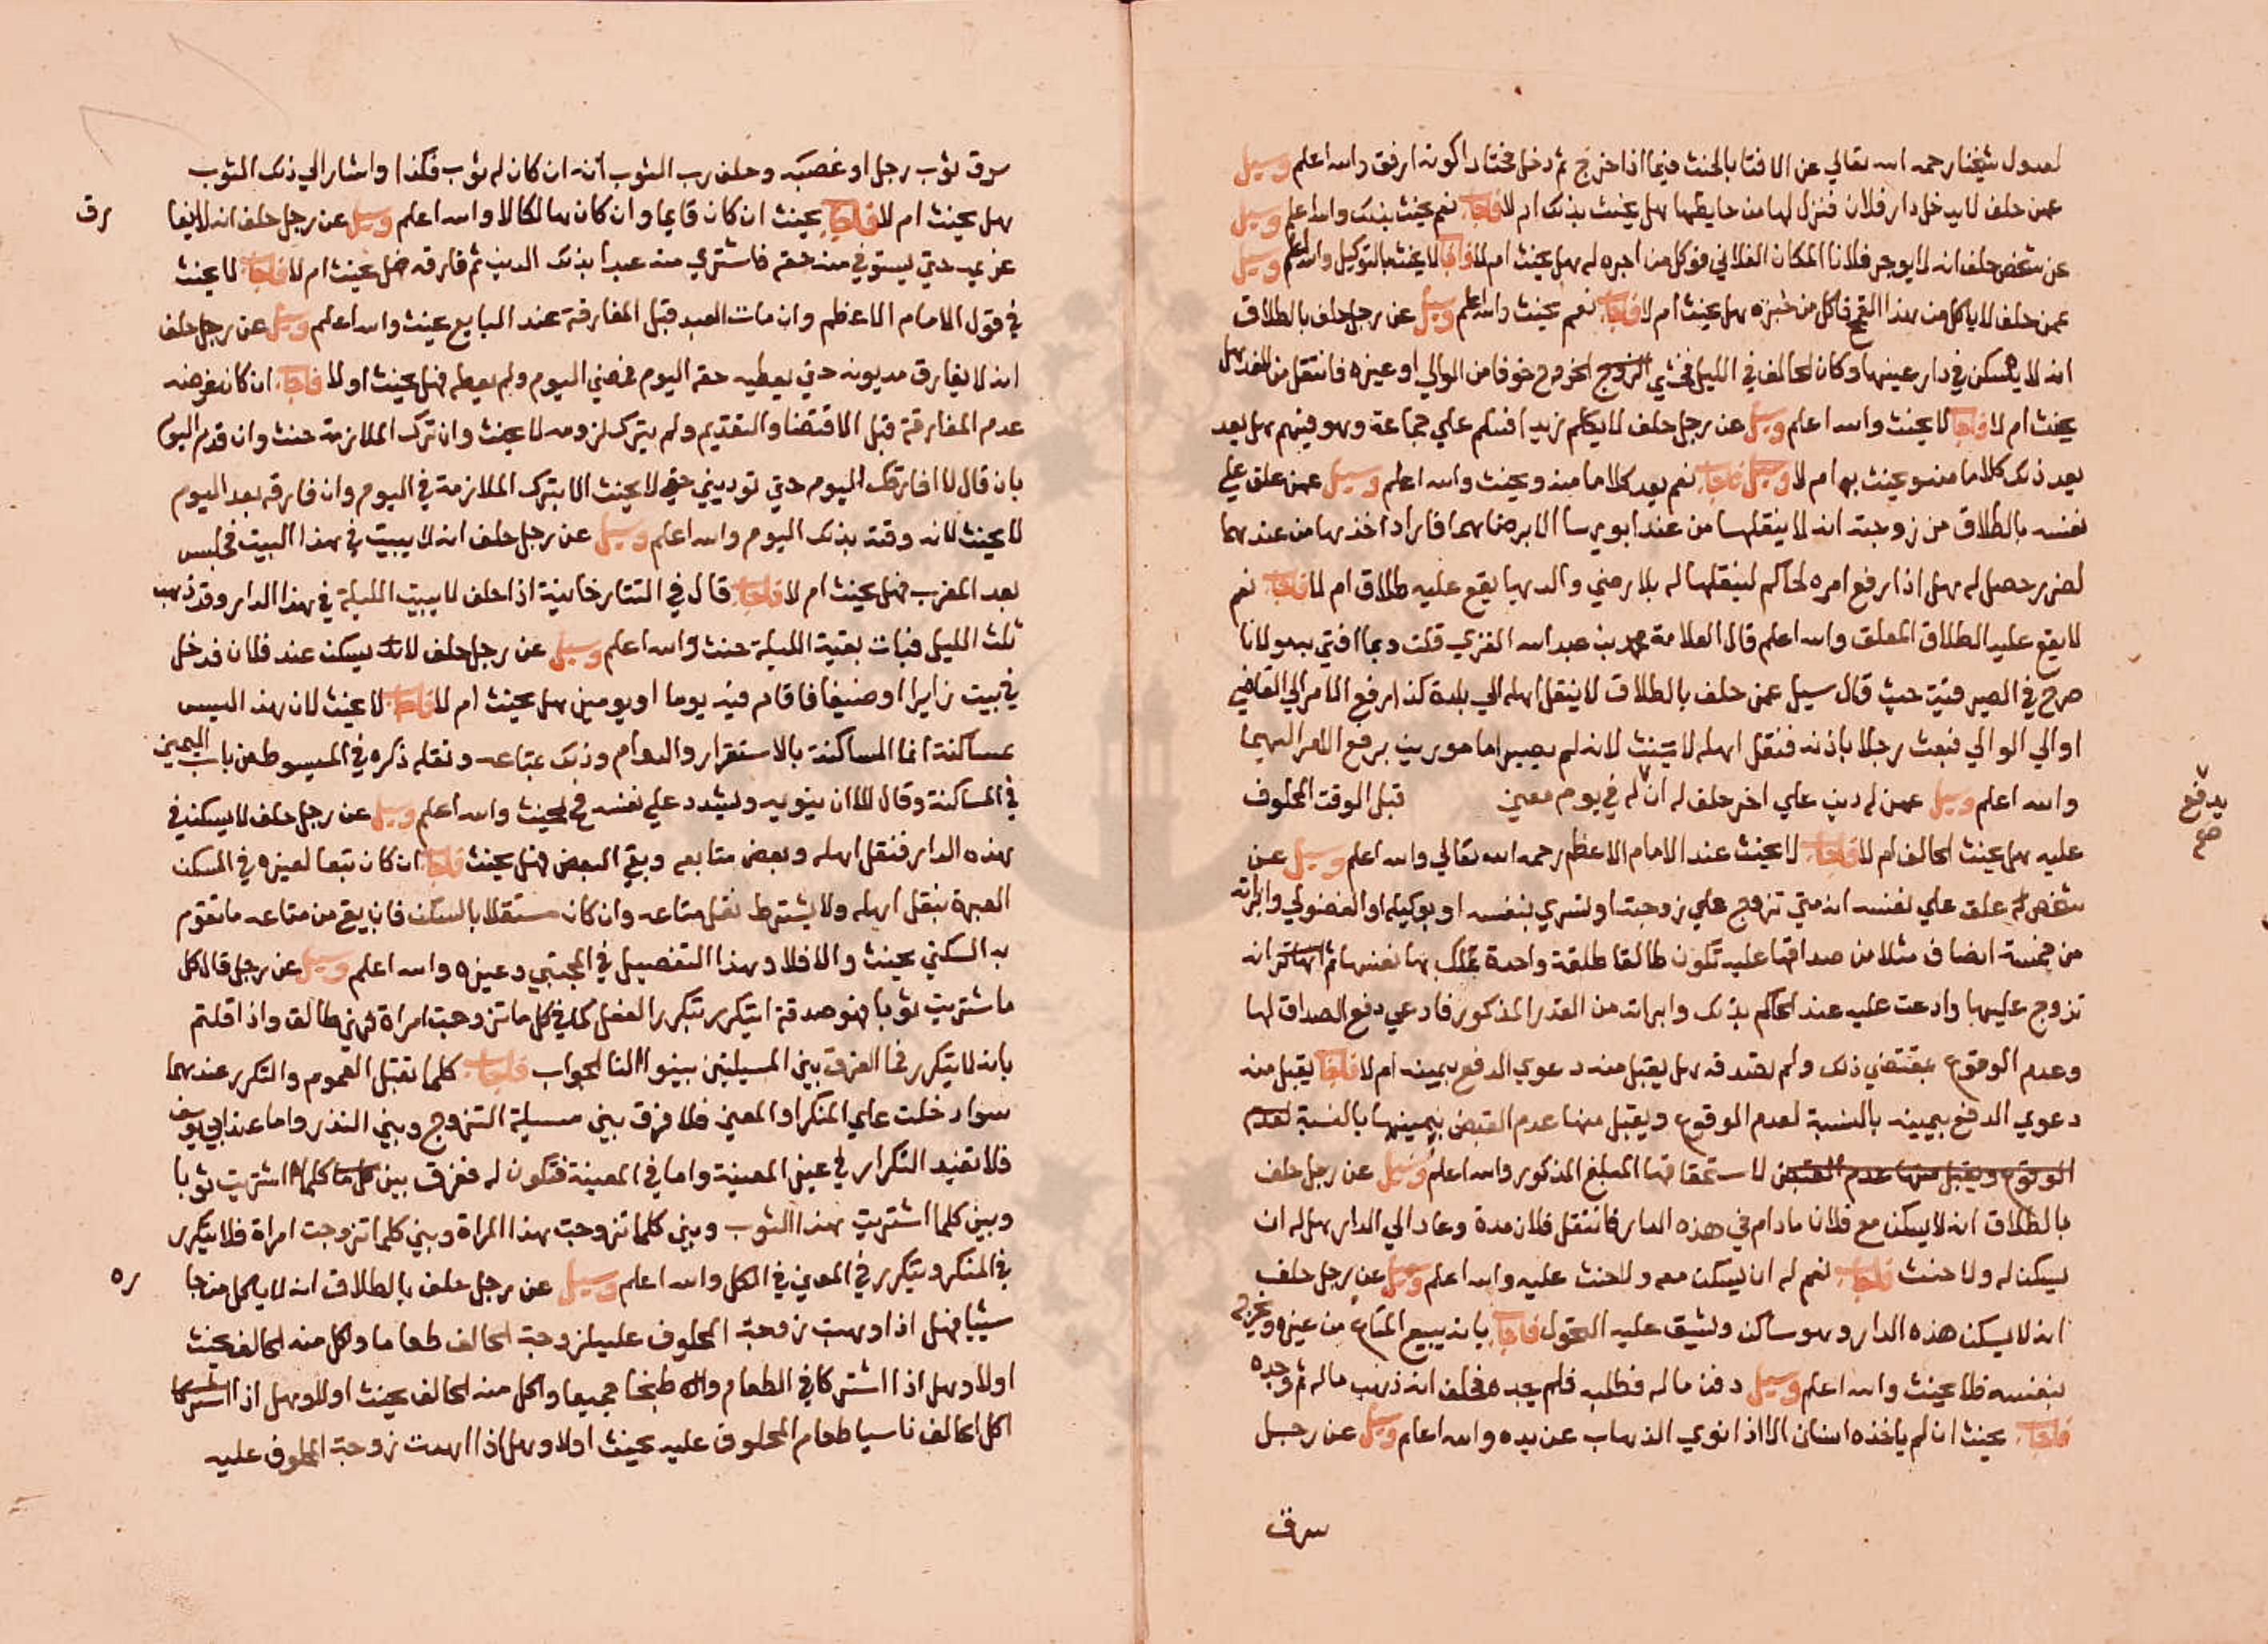 لعدول شيخنا رحمه الله تعالي عن الافتا بالحنث فيما اذا خرج ثم دخل مختارا كونه ارفق والله اعلم وسيل
عمن حلف لا يدخل دار فلان فنزل لها من حايطها هل يحنث بذلك ام لا فاجاب نعم يحنث بذلك والله اعلم وسيل
عن شخص حلف انه لا يوجر فلانا المكان الفلاني فوكل من اجره له هل يحنث ام لا فاجاب لا يحنث بالتوكيل والله اعلم وسيل
عمن حلف لا ياكل من هذا القمح فاكل من خبزه هل يحنث ام لا فاجاب نعم يحنث والله اعلم وسيل عن رجل حلف بالطلاق
انه لا يسكن في دار عينها وكان الحالف في الليل فخشي الخروج خوفا من الوالي او غيره فانتقل من الغد هل
يحنث ام لا فاجاب لا يحنث والله اعلم وسيل عن رجل حلف لا يكلم زيدا فسلم علي جماعة وهو فيهم هل يعد
يعد ذلك كلاما منه ويحنث به ام لا فاجاب نعم يعد كلاما منه ويحنث والله اعلم وسيل عمن علق علي
نفسه بالطلاق من زوجته انه لا ينقلها من عند ابويها الا برضاهما فاراد اخذها من عندهما
لضرر حصل له هل اذا رفع امره لحاكم لينقلها له بلا رضي والديها يقع عليه طلاق ام لا فاجاب نعم
لا يقع عليه الطلاق المعلق والله اعلم قال العلامة محمد بن عبد الله الغزي قلت وبما افتي به مولانا
صرح في الصيرفية حيث قال سيل عمن حلف بالطلاق لا ينقل اهله الي بلدة كذا رفع الامر الي القاضي
او الي الوالي فبعث رجلا باذنه فنقل اهله لا يحنث لانه لم يصير امامورين برفع الامر اليهما
والله اعلم وسيل عمن له دين علي اخر حلف له ان له في يوم معين قبل الوقت المحلوف
يدفع
صح
عليه هل يحنث الحالف ام لا فاجاب لا يحنث عند الامام الاعظم رحمه الله تعالي والله اعلم وسيل عن
شخص علق علي نفسه انه متي تزوج علي زوجته او تسري بنفسه او بوكيله او الفضولي وابراته
من خمسة انصاف مثلا من صداقها عليه تكون طالقا طلقة واحدة تملك بها نفسها ثم انه
تزوج عليها وادعت عليه عند الحاكم بذلك وابراته من القدر المذكور فادعي دفع الصداق لها
وعدم الوقوع بمقتضي ذلك ولم تصدقه هل يقبل منه دعوي الدفع بيمينه ام لا فاجاب يقبل منه
دعوي الدفع بيمينه بالنسبة لعدم الوقوع ويقبل منها عدم القبض بيمينها بالنسبة لعدم
الوقوع ويقبل منها عدم القبض لاستحقاقها المبلغ المذكور والله اعلم وسيل عن رجل حلف
بالطلاق انه لا يسكن مع فلان ما دام في هذه الدار فانتقل فلان مدة وعاد الي الدار هل له ان
يسكن له ولا حنث فاجاب نعم له ان يسكن معه ولا حنث عليه والله اعلم وسيل عن رجل حلف
انه لا يسكن هذه الدار وهو ساكن ويشق عليه التحول فاجاب بانه يبيع المتاع من غيره ويخرج
بنفسه فلا يحنث والله اعلم وسيل دفن ماله فطلبه فلم يجده فحلف انه ذهب ماله ثم وجده
فاجاب يحنث ان لم ياخذه انسان الا اذا نوي الذهاب عن يده والله اعلم وسيل عن رجل
سرق
سرق ثوب رجل او غصبه وحلف رب الثوب انه ان كان له ثوب فكذا واشار الي ذلك الثوب
هل يحنث ام لا فاجاب يحنث ان كان قايما وان كان هالكا لا والله اعلم وسيل عن رجل حلف انه لا يفا
رق
غريمه حتي يستوفي منه حقه فاشتري منه عبدا بذلك الدين ثم فارقه هل يحنث ام لا فاجاب لا يحنث
في قول الامام الاعظم وان مات العبد قبل المفارقة عند البايع يحنث والله اعلم وسيل عن رجل حلف
انه لا يفارق مديونه حتي يعطيه حقه اليوم فمضي اليوم ولم يعطه فهل يحنث او لا فاجاب ان كان غرضه
عدم المفارقة قبل الاقتضا والتقديم ولم يترك لزومه لا يحنث وان ترك الملازمة حنث وان قدم اليوم
بان قال لا افارقك اليوم حتي توديني حقي لا يحنث الا بترك الملازمة في اليوم وان فارقه بعد اليوم
لا يحنث لانه وقته بذلك اليوم والله اعلم وسيل عن رجل حلف انه لا يبيت في هذا البيت فجلس
بعد المغرب فهل يحنث ام لا فاجاب قال في التتارخانية اذا حلف لا يبيت الليلة في هذا الدار وقد ذهب
ثلث الليل فبات بقية الليلة حنث والله اعلم وسيل عن رجل حلف لا يسكن عند فلان فدخل
في بيت زايرا او ضيفا فاقام فيه يوما او يومين هل يحنث ام لا فاجاب لا يحنث لان هذا ليس
بمساكنة انما المساكنة بالاستقرار والدوام وذلك بمتاعه ونقله ذكره في المبسوط من باب اليمين
في المساكنة وقال الا ان ينويه ويشدد علي نفسه فيحنث والله اعلم وسيل عن رجل حلف لا يسكن في
هذه الدار فنقل اهله وبعض متاعه وبقي البعض فهل يحنث فاجاب ان كان تبعا لغيره في المسكن
العبرة بنقل اهله ولا يشترط نقل متاعه وان كان مستقلا بالسكن فان بقي من متاعه ما تقوم
به السكني يحنث والا فلا وهذا التفصيل في المجتبي وغيره والله اعلم وسيل عن رجل قال كل
ما شتريت ثوبا فهو صدقة ايتكرر بتكرر الفعل كما في كل ما تزوجت امراة فهي طالق واذا قلتم
بانه لا يتكرر فما الفرق بين المسيلتين بينوا لنا الجواب فاجاب كلما تقبل العموم والتكرر عندهما
سوا دخلت علي المنكر او المعين فلا فرق بين مسيلة التزوج وبين النذر واما عند ابي يوسف
فلا تفيد التكرار في عين المعينة واما في المعينة فتكون له ففرق بين كلما اشتريت ثوبا
وبين كلما اشتريت هذا الثوب وبين كلما تزوجت هذا المراة وبين كلما تزوجت امراة فلا يتكرر
في المنكر ويتكرر في المعين في الكل والله اعلم وسيل عن رجل حلف بالطلاق انه لا ياكل من جا
ره
سيئا فهل اذا وهبت زوجة المحلوف عليه لزوجة الحالف طعاما واكل منه الحالف يحنث
او لا وهل اذا اشتركا في الطعام والا طبخا جميعا واكل منه الحالف يحنث او لا وهل اذا
اكل الحالف ناسيا طعام المحلوف عليه يحنث او لا وهل اذا اهدت زوجة المحلوف عليه